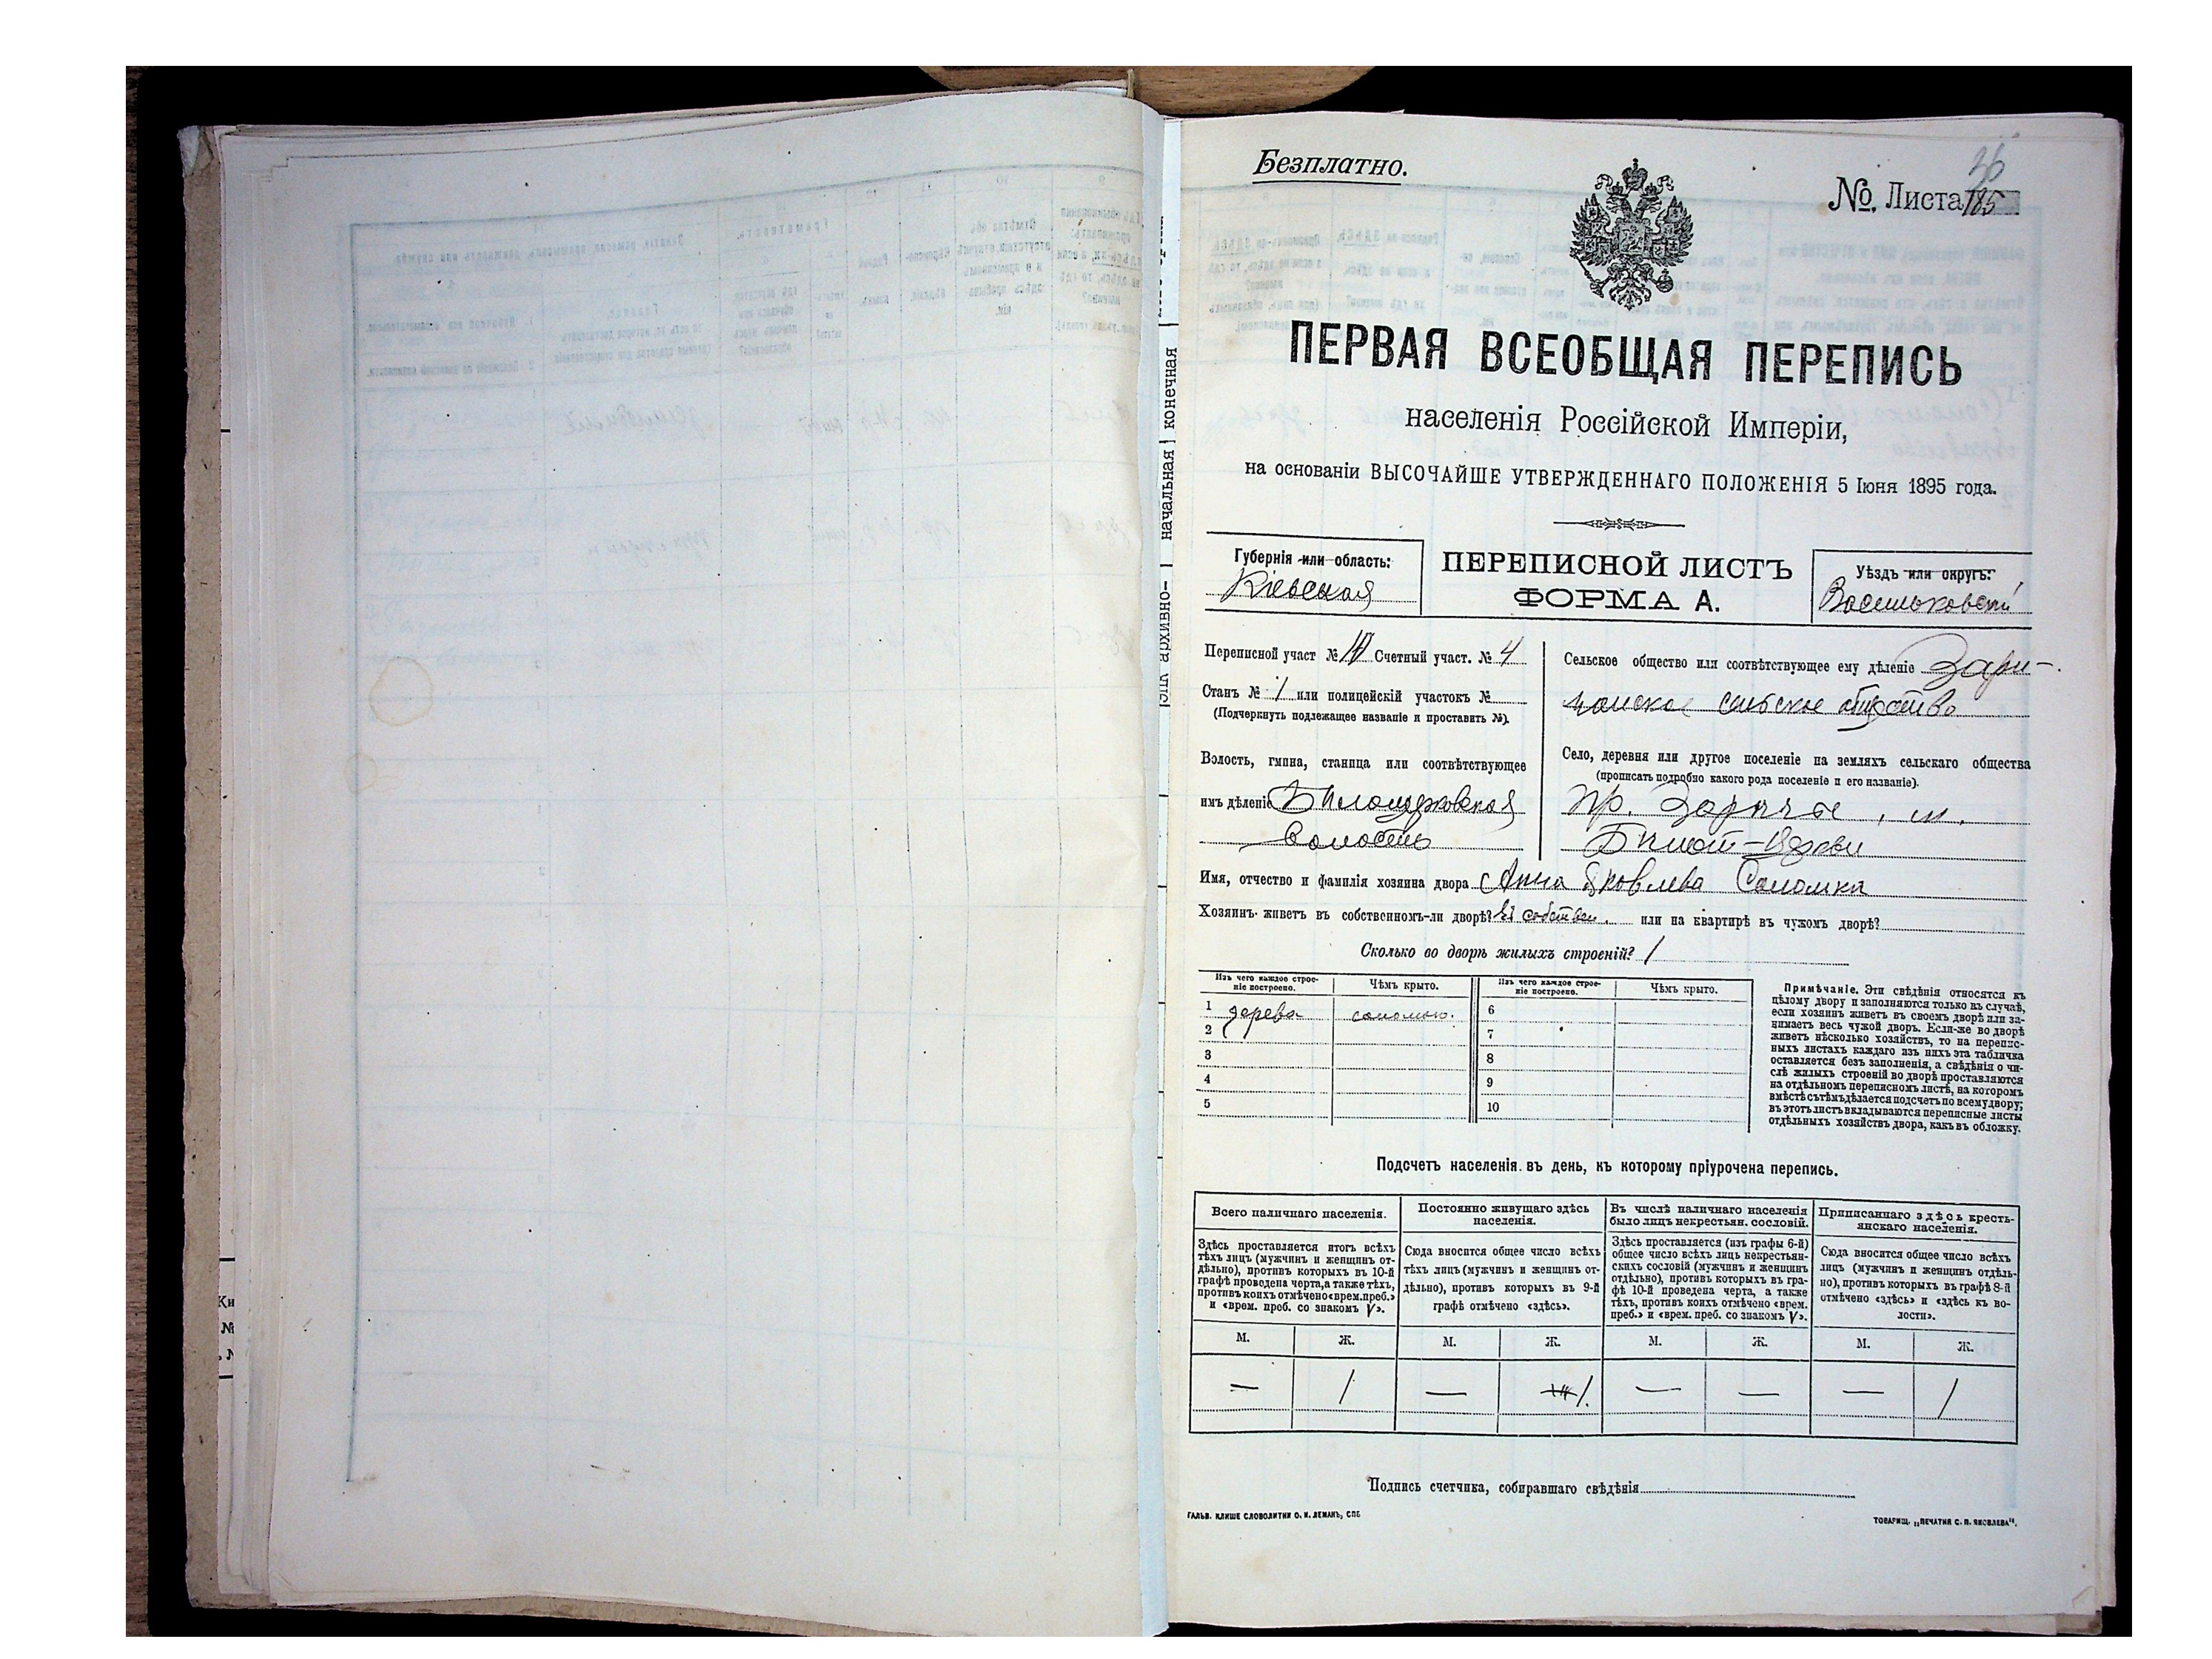 Безплатно.
26
№ Листа 185
ПЕРВАЯ ВСЕОБЩАЯ ПЕРЕПИСЬ
населенія Россійской Имперіи,
на основаніи ВЫСОЧАЙШЕ УТВЕРЖДЕННАГО ПОЛОЖЕНІЯ 5 Іюня 1895 года.
Губернія или область:
Кіевская
ПЕРЕПИСНОЙ ЛИСТЪ
ФОРМА А.
Уѣздъ или округъ:
Васильковскій
Переписной участ № Счетный участ. № 4
Станъ № 1 или полицейскій участокъ №
(Подчеркнуть подлежащее названіе и проставить №).
Волость, гмина, станица или соотвѣтствующее
имъ дѣленіе
волость
Сельское общество или соотвѣтствующее ему дѣленіе Зари-
чанское сельское общество
Село, деревня или другое поселеніе на земляхъ сельскаго общества
(прописать подробно какого рода поселеніе и его названіе).
пр. Заричье, м.
Имя, отчество и фамилія хозяина двора Анна Яковлева Соломка
Хозяинъ живетъ въ собственномъ-ли дворѣ? въ собствен. или на квартирѣ въ чужомъ дворѣ?
Сколько во дворѣ жилыхъ строеній? 1
Изъ чего каждое строе-
ніе построено.
Чѣмъ крыто.
Изъ чего каждое строе-
ніе построено.
Чѣмъ крыто.
1 дерева соломою. 6
2 7
3 8
4 9
5 10
Примѣчаніе. Эти свѣдѣнія относятся къ
цѣлому двору и заполняются только въ случаѣ,
если хозяинъ живетъ въ своемъ дворѣ или за-
нимаетъ весь чужой дворъ. Если-же во дворѣ
живетъ нѣсколько хозяйствъ, то на перепис-
ныхъ листахъ каждаго изъ нихъ эта табличка
оставляется безъ заполненія, а свѣдѣнія о чи-
слѣ жилыхъ строеній во дворѣ проставляются
на отдѣльномъ переписномъ листѣ, на которомъ
вмѣстѣ съ тѣмъ дѣлается подсчетъ по всему двору;
въ этотъ листъ вкладываются переписные листы
отдѣльныхъ хозяйствъ двора, какъ въ обложку.
Подсчетъ населенія въ день, къ которому пріурочена перепись.
Всего наличнаго населенія.
Здѣсь проставляется итогъ всѣхъ
тѣхъ лицъ (мужчинъ и женщинъ от-
дѣльно), противъ которыхъ въ 10-й
графѣ проведена черта, а также тѣхъ,
противъ коихъ отмѣчено «врем. преб.»
и «врем. преб. со знакомъ V».
Постоянно живущаго здѣсь
населенія.
Сюда вносится общее число всѣхъ
тѣхъ лицъ (мужчинъ и женщинъ от-
дѣльно), противъ которыхъ въ 9-й
графѣ отмѣчено «здѣсь».
Въ числѣ наличнаго населенія
было лицъ некрестьян. сословій.
Здѣсь проставляется (изъ графы 6-й)
общее число всѣхъ лицъ некрестьян-
скихъ сословій (мужчинъ и женщинъ
отдѣльно), противъ которыхъ въ гра-
фѣ 10-й проведена черта, а также
тѣхъ, противъ коихъ отмѣчено «врем.
преб.» и «врем. преб. со знакомъ V».
Приписаннаго здѣсь кресть-
янскаго населенія.
Сюда вносится общее число всѣхъ
лицъ (мужчинъ и женщинъ отдѣль-
но), противъ которыхъ въ графѣ 8-й
отмѣчено «здѣсь» и «здѣсь къ во-
лости».
М. Ж. М. Ж. М. Ж. М. Ж.
— 1 — 1. — — — 1
Подпись счетчика, собиравшаго свѣдѣнія
ГАЛЬВ. КЛИШЕ СЛОВОЛИТНИ О. И. ЛЕМАНЪ, СПБ
ТОВАРИЩ. „ПЕЧАТНЯ С. П. ЯКОВЛЕВА".
начальная
конечная
архивно-